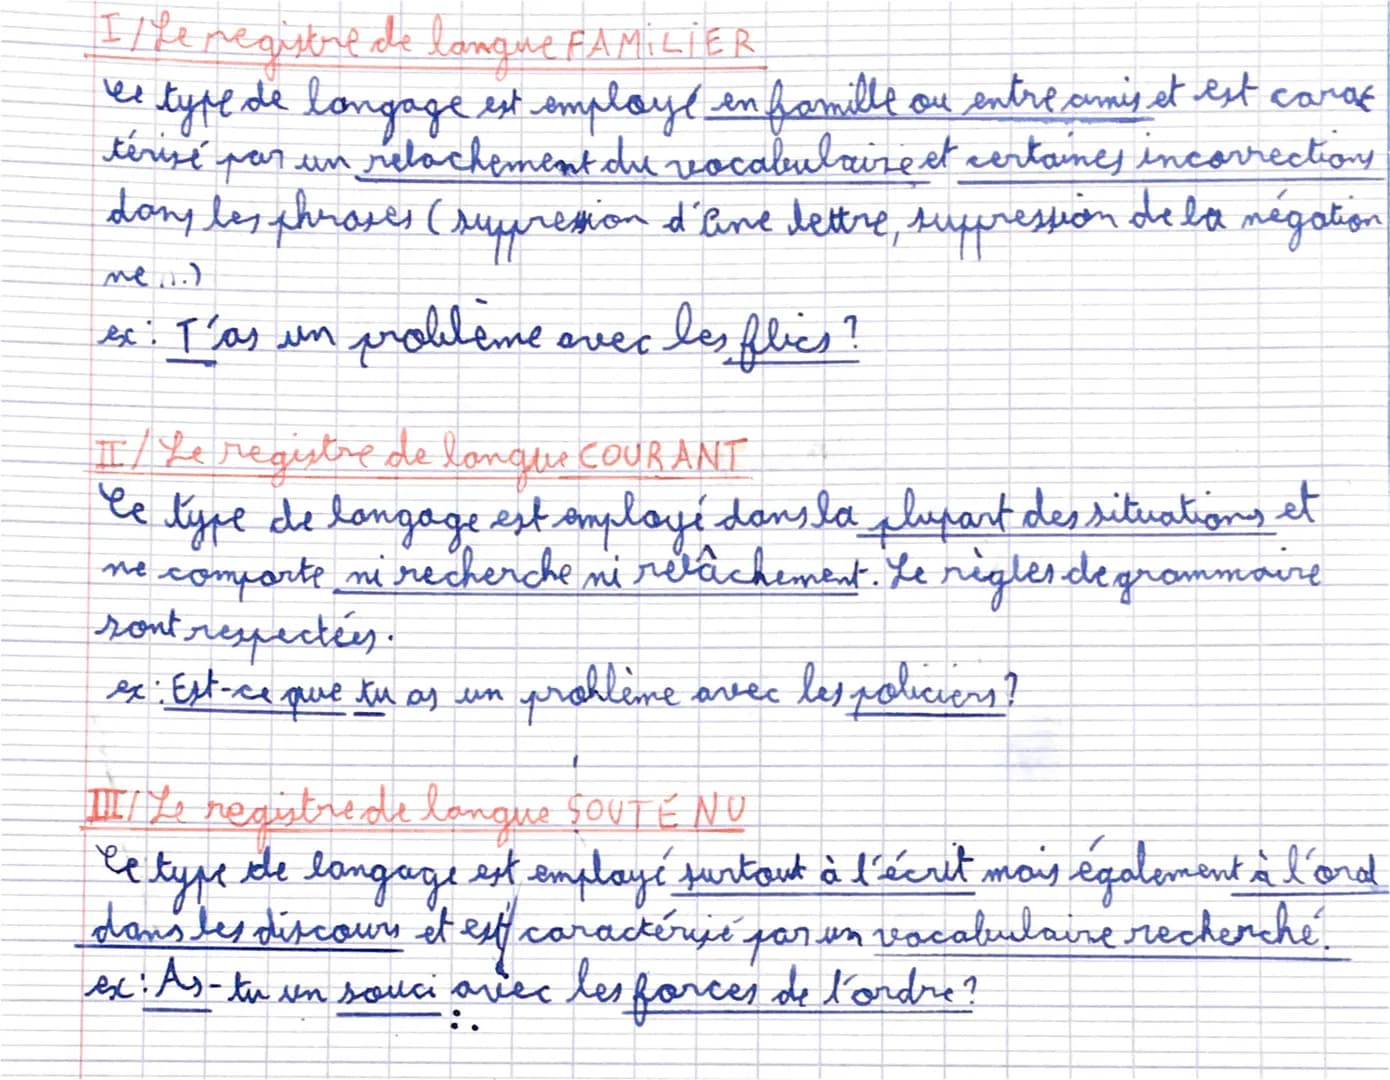 I/ Le registre de langue FAMILIER
Ce type de langage est employé en famille ou entre amis et est carac
térisé par un relachement du vocabulaire et certaines incorrections
dans les phrases (suppression d'une lettre, suppression de la négation
ne...)
ex: T'as un problème avec les flics ?
II/ Le registre de langue COURANT
Ce type de langage est employé dans la plupart des situations et
ne comporte ni recherche ni relâchement. Le règles de grammaire
sont respectées.
ex: Est-ce que tu as un problème avec les policiers ?
III/ Le registre de langue SOUTENU
Ce type de langage est employé surtout à l'écrit mais également à l'oral
dans les discours et est caractérisé par un vocabulaire recherché.
ex: As-tu un souci avec les forces de l'ordre ?